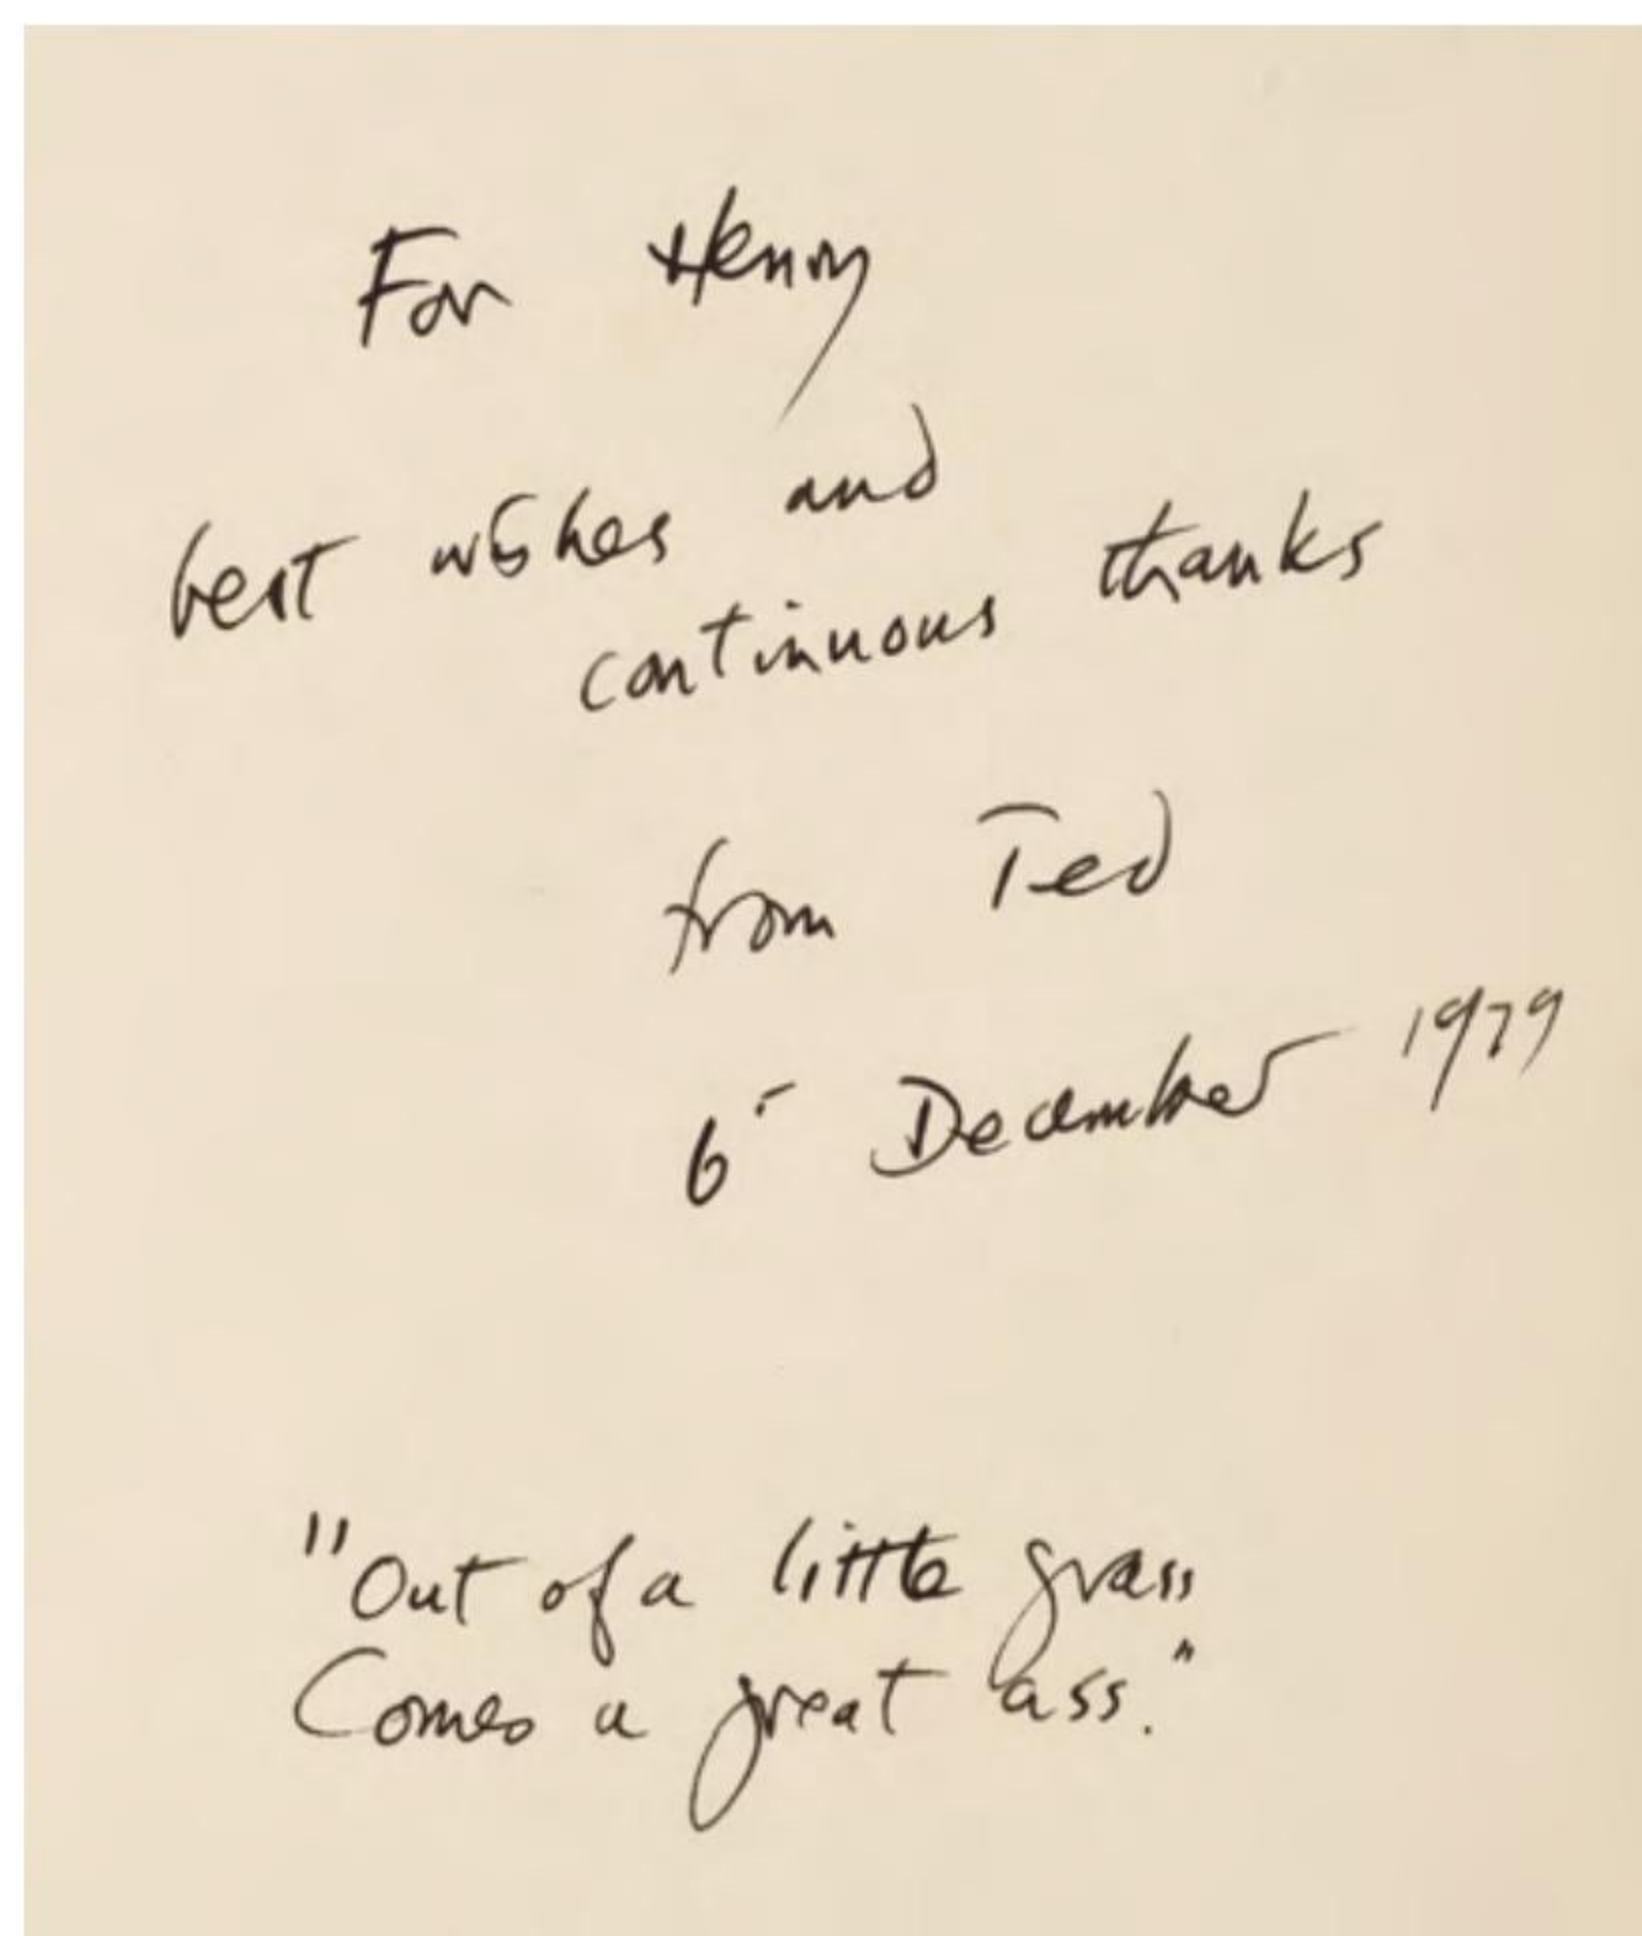 For Henry
best wishes and
continuous thanks
from Ted
6th December 1979
"Out of a little grass
Comes a great ass."